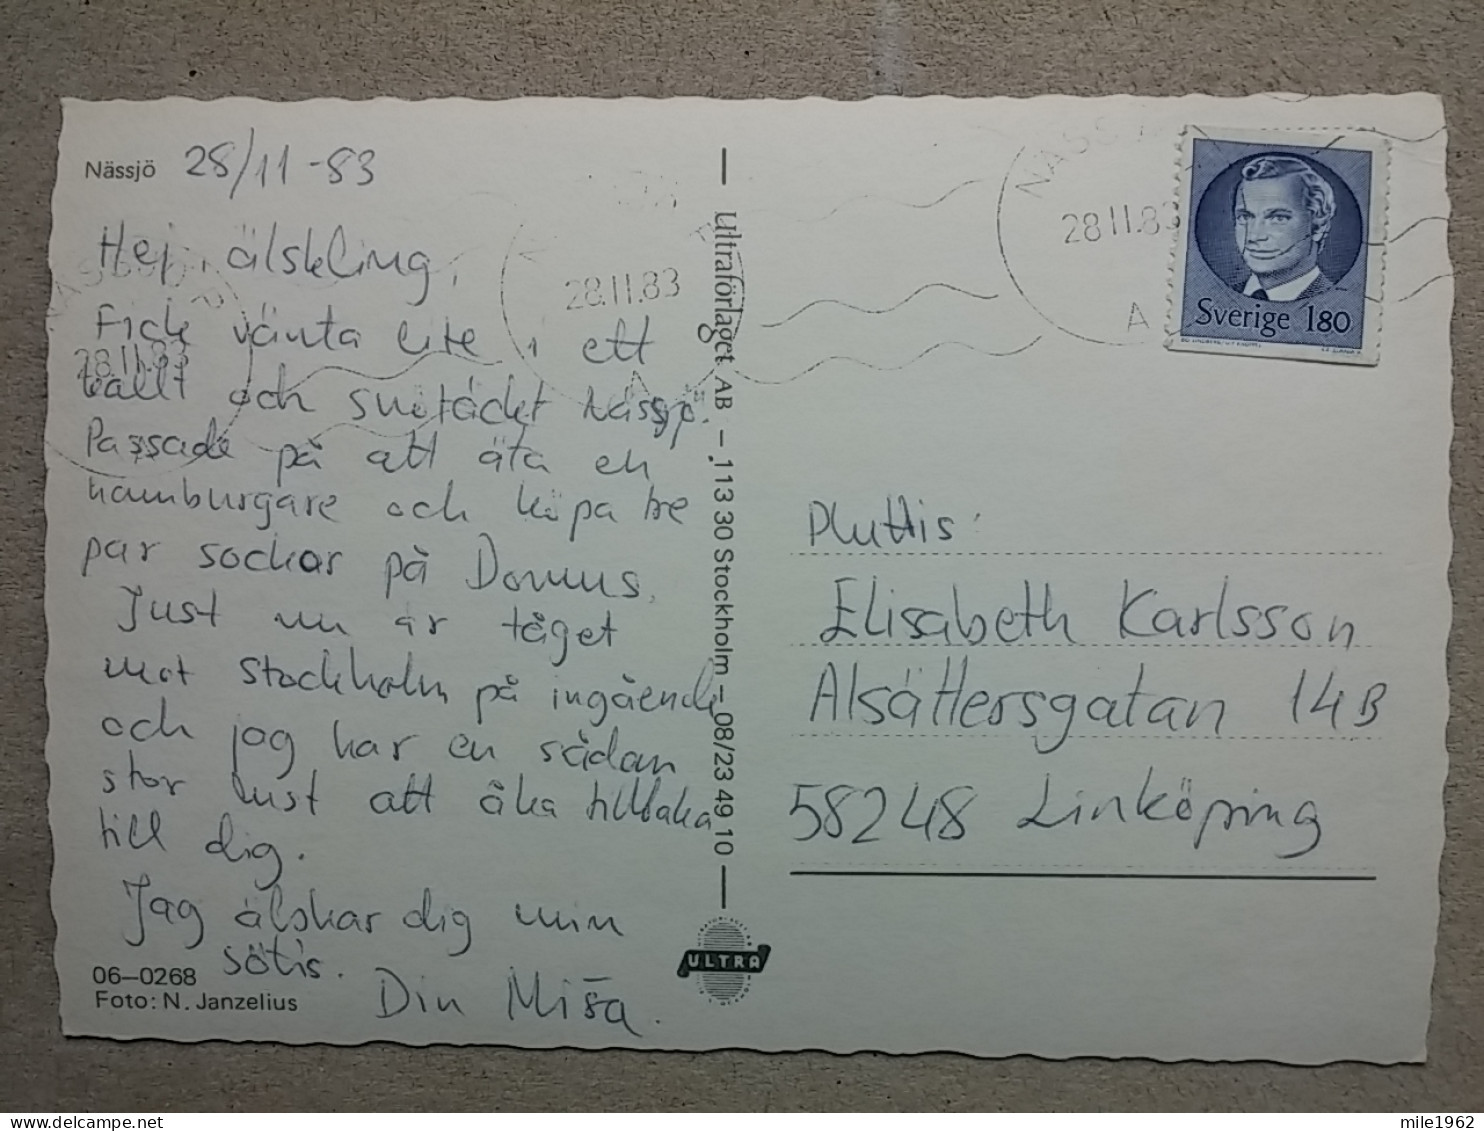 Nässjö 28/11 -83
Hej, älskling,
Fick vänta lite i ett
kallt och snötäckt Nässjö.
Passade på att äta en
hamburgare och köpa tre
par sockar på Domus.
Just nu är tåget
mot Stockholm på ingående
och jag har en sådan
stor lust att åka tillbaka
till dig.
Jag älskar dig min
sötis.
Din Miša.
06–0268
Foto: N. Janzelius
Ultraförlaget AB – 113 30 Stockholm – 08/23 49 10
ULTRA
NÄSSJÖ
28.11.83
A
28.11.83
A
28.11.83
Sverige 180
Pluttis:
Elisabeth Karlsson
Alsättersgatan 14B
58248 Linköping
mile1962